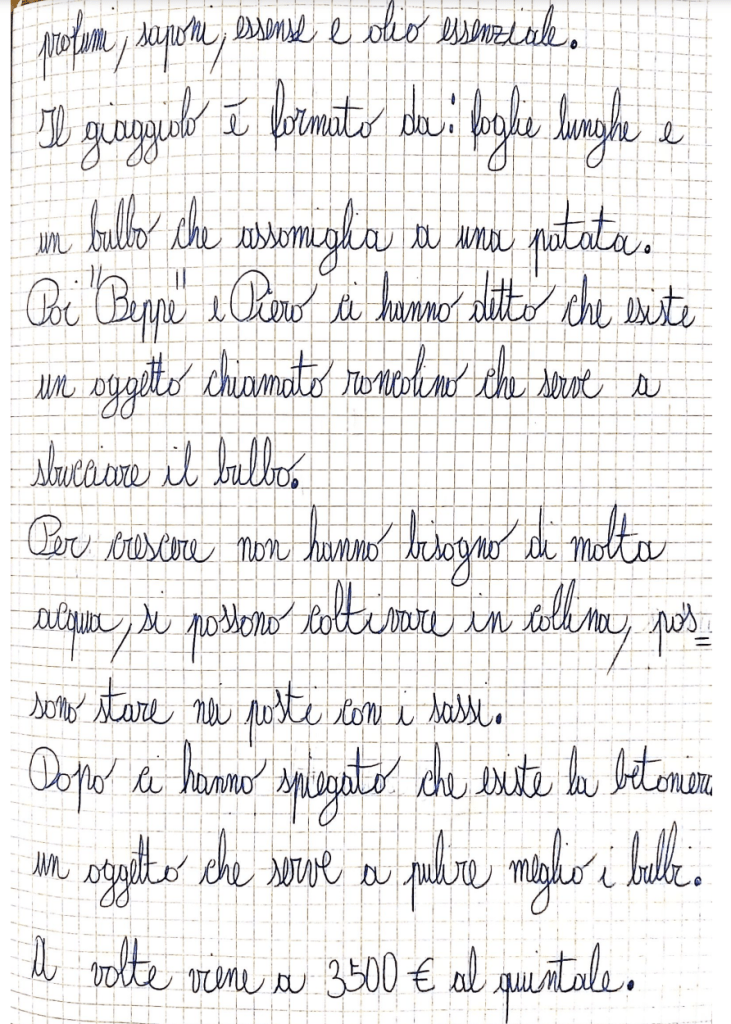 profumi, saponi, essense e olio essenziale.
Il giaggiolo è formato da: foglie lunghe e
un bulbo che assomiglia a una patata.
Poi "Beppe" e Piero ci hanno detto che esiste
un oggetto chiamato roncolino che serve a
sbucciare il bulbo.
Per crescere non hanno bisogno di molta
acqua, si possono coltivare in collina, pos=
sono stare nei posti con i sassi.
Dopo ci hanno spiegato che esiste la betoniera
un oggetto che serve a pulire meglio i bulbi.
A volte viene a 3500 € al quintale.